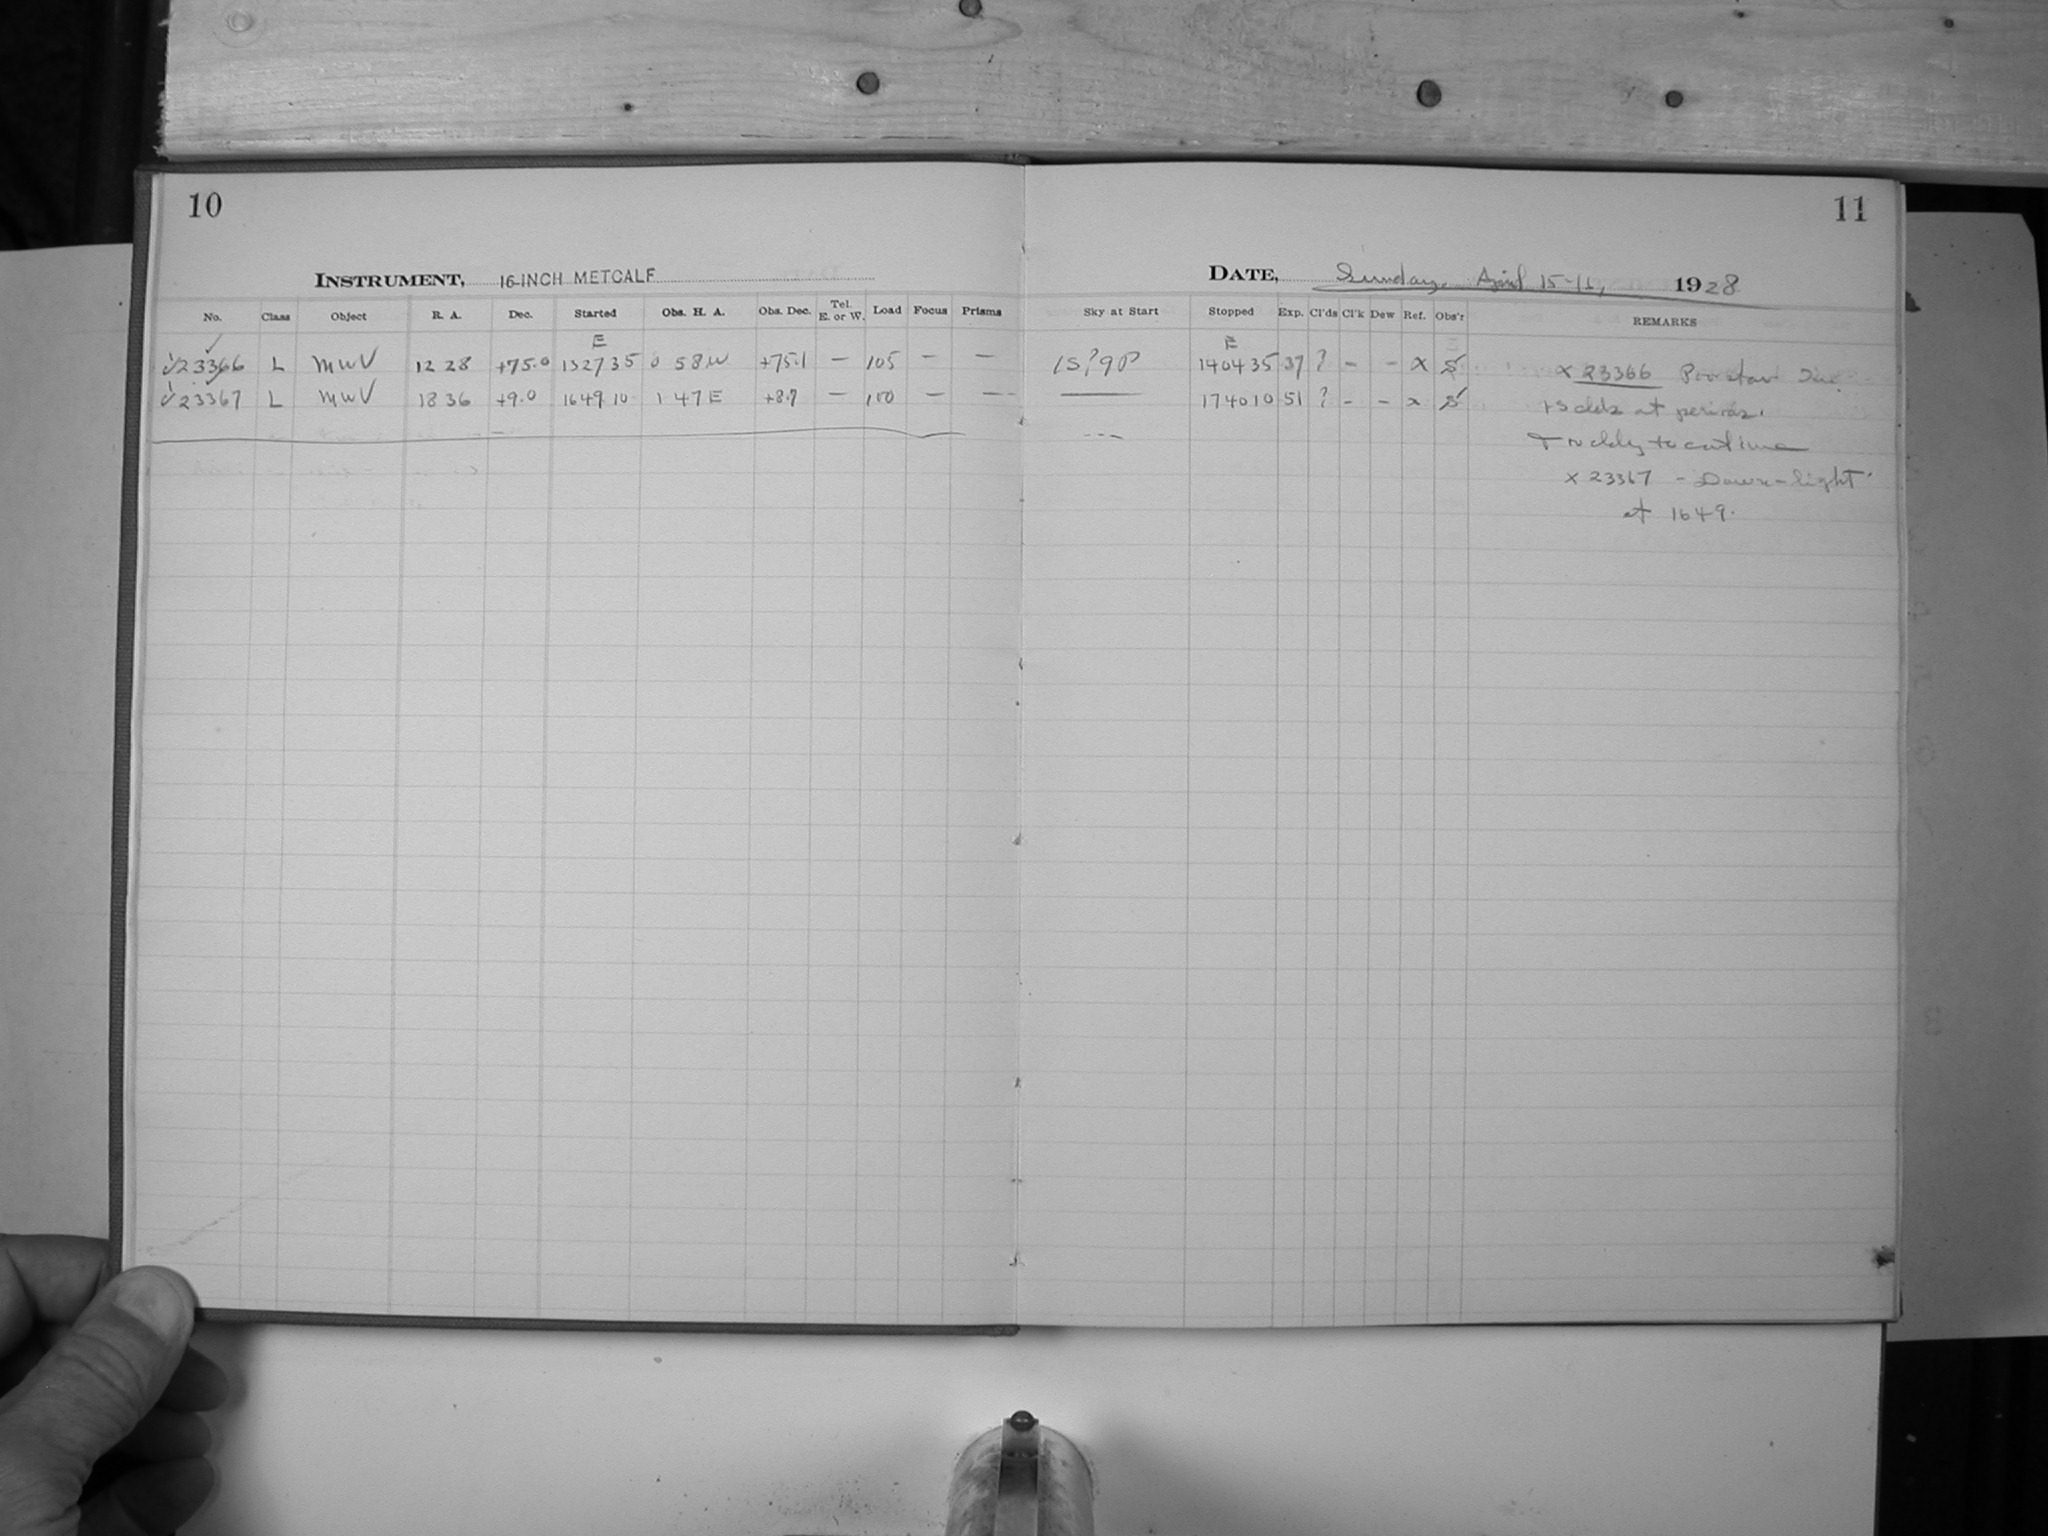 10
11
INSTRUMENT, 16-INCH METCALF
DATE, Sunday, April 15-16, 1928
No. Class Object R. A. Dec. Started Obs. H. A. Obs. Dec. Tel. E. or W. Load Focus Prisms Sky at Start Stopped Exp. Cl'ds Cl'k Dew Ref. Obs'r REMARKS
E E
√23366 L MWV 12 28 +75.0 13 27 35 0 58 W +75.1 — 105 — — 1S?9P 14 04 35 37 ? - - x S x 23366 Poor star
√23367 L MWV 18 36 +9.0 16 49 10 1 47 E +8.7 — 100 — — —— 17 40 10 51 ? - - x S clds at
---
x 23367 - Dawn-light
at 1649.